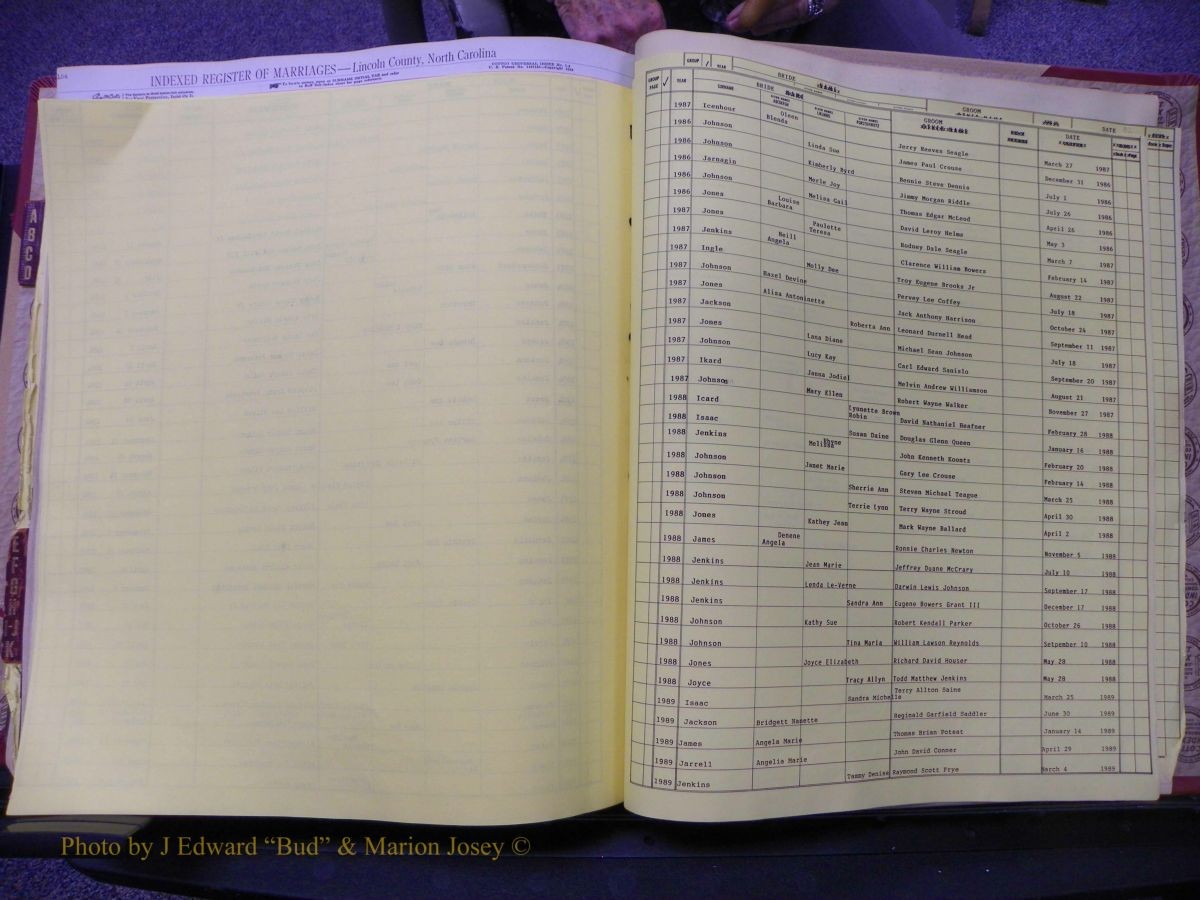 INDEXED REGISTER OF MARRIAGES—Lincoln County, North Carolina
GROUP √ YEAR BRIDE GROOM DATE
GROUP PAGE √ YEAR SURNAME BRIDE GROOM DATE
1987 Icenhour Olson Blenda Jerry Reeves Seagle March 27 1987
1986 Johnson Linda Sue James Paul Crouse December 31 1986
1986 Johnson Kimberly Byrd Bennie Steve Dennis July 1 1986
1986 Jarnagin Merle Joy Jimmy Morgan Riddle July 26 1986
1986 Johnson Melisa Gail Thomas Edgar McLeod April 26 1986
1986 Jones Louise Barbara David Leroy Helms May 3 1986
1987 Jones Paulette Teresa Rodney Dale Seagle March 7 1987
1987 Jenkins Heill Angela Clarence William Bowers February 14 1987
1987 Ingle Molly Dee Troy Eugene Brooks Jr August 22 1987
1987 Johnson Hazel Devine Pervey Lee Coffey July 18 1987
1987 Jones Alisa Antoinette Jack Anthony Harrison October 24 1987
1987 Jackson Roberta Ann Leonard Durnell Head September 11 1987
1987 Jones Lana Diane Michael Sean Johnson July 18 1987
1987 Johnson Lucy Kay Carl Edward Sanislo September 20 1987
1987 Ikard Janna Jodiel Melvin Andrew Williamson August 21 1987
1987 Johnson Mary Ellen Robert Wayne Walker November 27 1987
1988 Icard Lynnette Brown Robin David Nathaniel Heafner February 28 1988
1988 Isaac Susan Daine Douglas Glenn Queen January 16 1988
1988 Jenkins Rhyne Melissa John Kenneth Koontz February 20 1988
1988 Johnson Janet Marie Gary Lee Crouse February 14 1988
1988 Johnson Sherrie Ann Steven Michael Teague March 25 1988
1988 Johnson Terrie Lynn Terry Wayne Stroud April 30 1988
1988 Jones Kathey Jean Mark Wayne Ballard April 2 1988
1988 James Denene Angela Ronnie Charles Newton November 5 1988
1988 Jenkins Jean Marie Jeffrey Duane McCrary July 10 1988
1988 Jenkins Lenda Le-Verne Darwin Lewis Johnson September 17 1988
1988 Jenkins Sandra Ann Eugene Bowers Grant III December 17 1988
1988 Johnson Kathy Sue Robert Kendall Parker October 26 1988
1988 Johnson Tina Maria William Lawson Reynolds Setpember 10 1988
1988 Jones Joyce Elizabeth Richard David Houser May 28 1988
1988 Joyce Tracy Allyn Todd Matthew Jenkins May 28 1988
1989 Isaac Sandra Michelle Terry Allton Saine March 25 1989
1989 Jackson Bridgett Nanette Reginald Garfield Saddler June 30 1989
1989 James Angela Marie Thomas Brian Poteat January 14 1989
1989 Jarrell Angelia Marie John David Conner April 29 1989
1989 Jenkins Tammy Denise Raymond Scott Frye March 4 1989
A B C D
Photo by J Edward “Bud” & Marion Josey ©